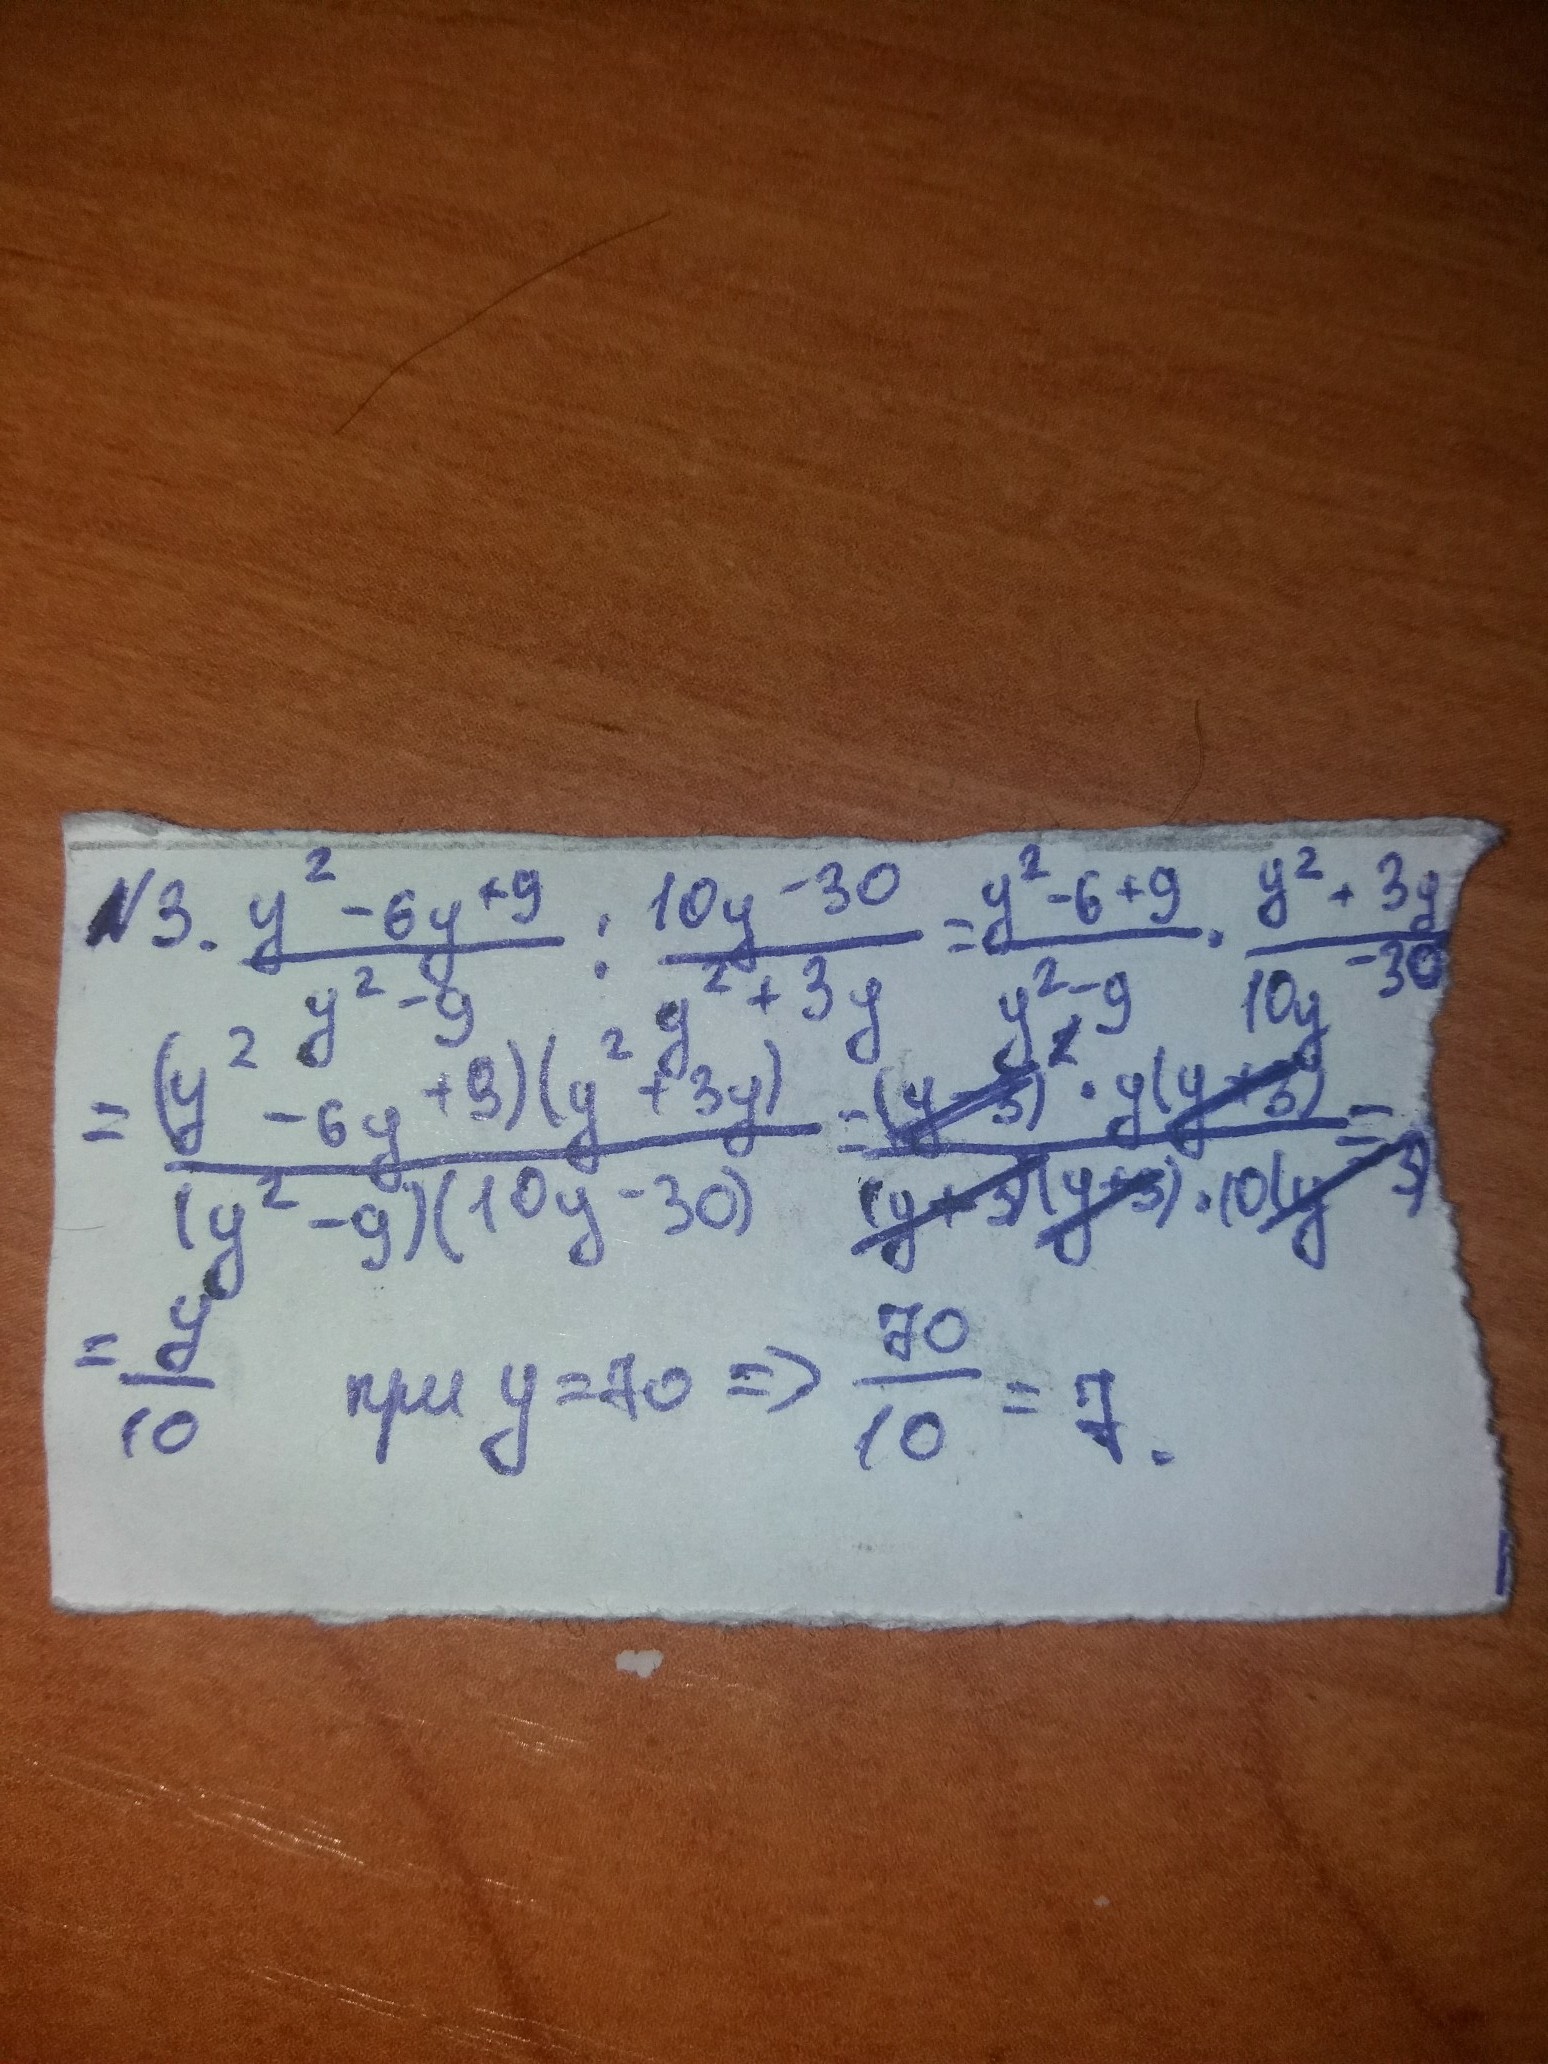 №3. (y² - 6y + 9)/(y² - 9) : (10y - 30)/(y² + 3y) = (y² - 6 + 9)/(y² - 9) · (y² + 3y)/(10y - 30)
= (y² - 6y + 9)(y² + 3y)/(y² - 9)(10y - 30) = (y - 3)² · y(y + 3)/(y + 3)(y - 3) · 10(y - 3) =
= y/10 при y = 70 => 70/10 = 7.